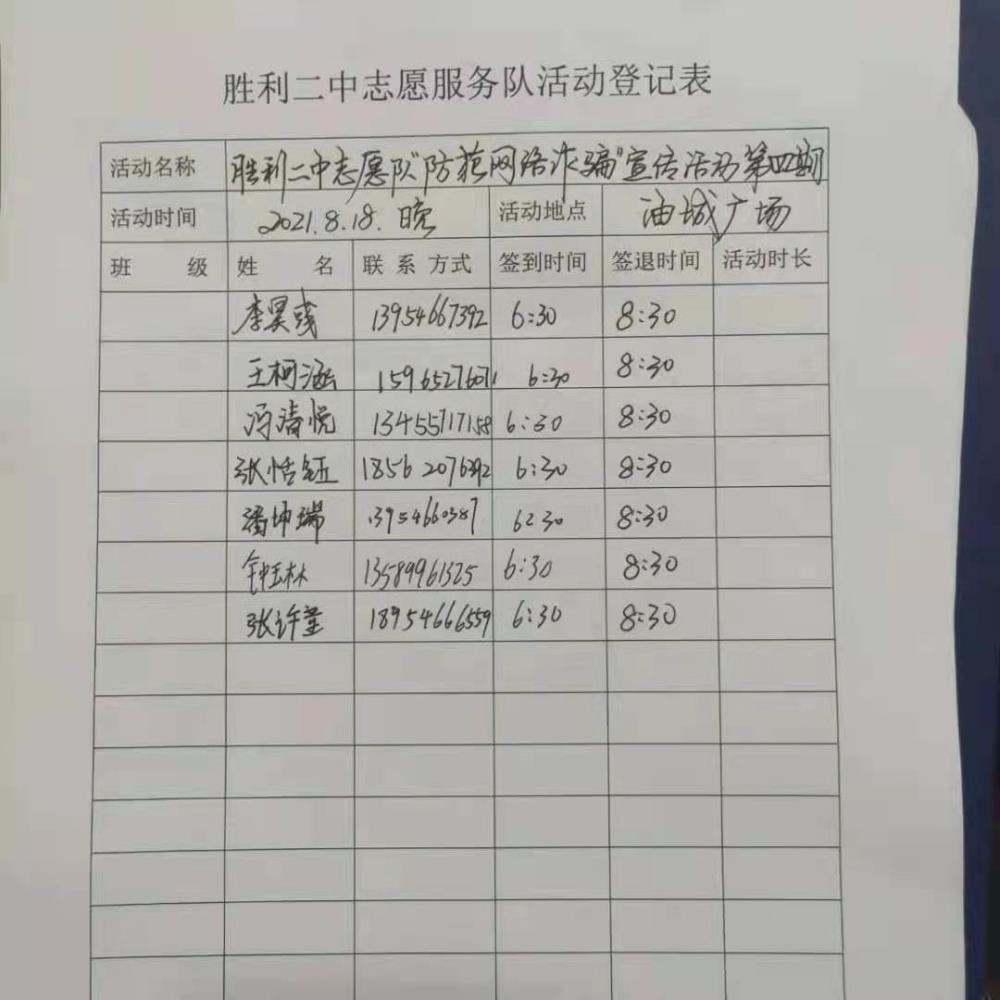 胜利二中志愿服务队活动登记表
活动名称 胜利二中志愿队"防范网络诈骗"宣传活动第四期
活动时间 2021.8.18.晚 活动地点 油城广场
班 级 姓 名 联系方式 签到时间 签退时间 活动时长
李昊彧 13954667392 6:30 8:30
王柯涵 15965276071 6:30 8:30
冯清悦 13455717158 6:30 8:30
张恬钰 18562076392 6:30 8:30
潘坤瑞 13954660387 6:30 8:30
钟玉林 13589961325 6:30 8:30
张许莹 18954666559 6:30 8:30